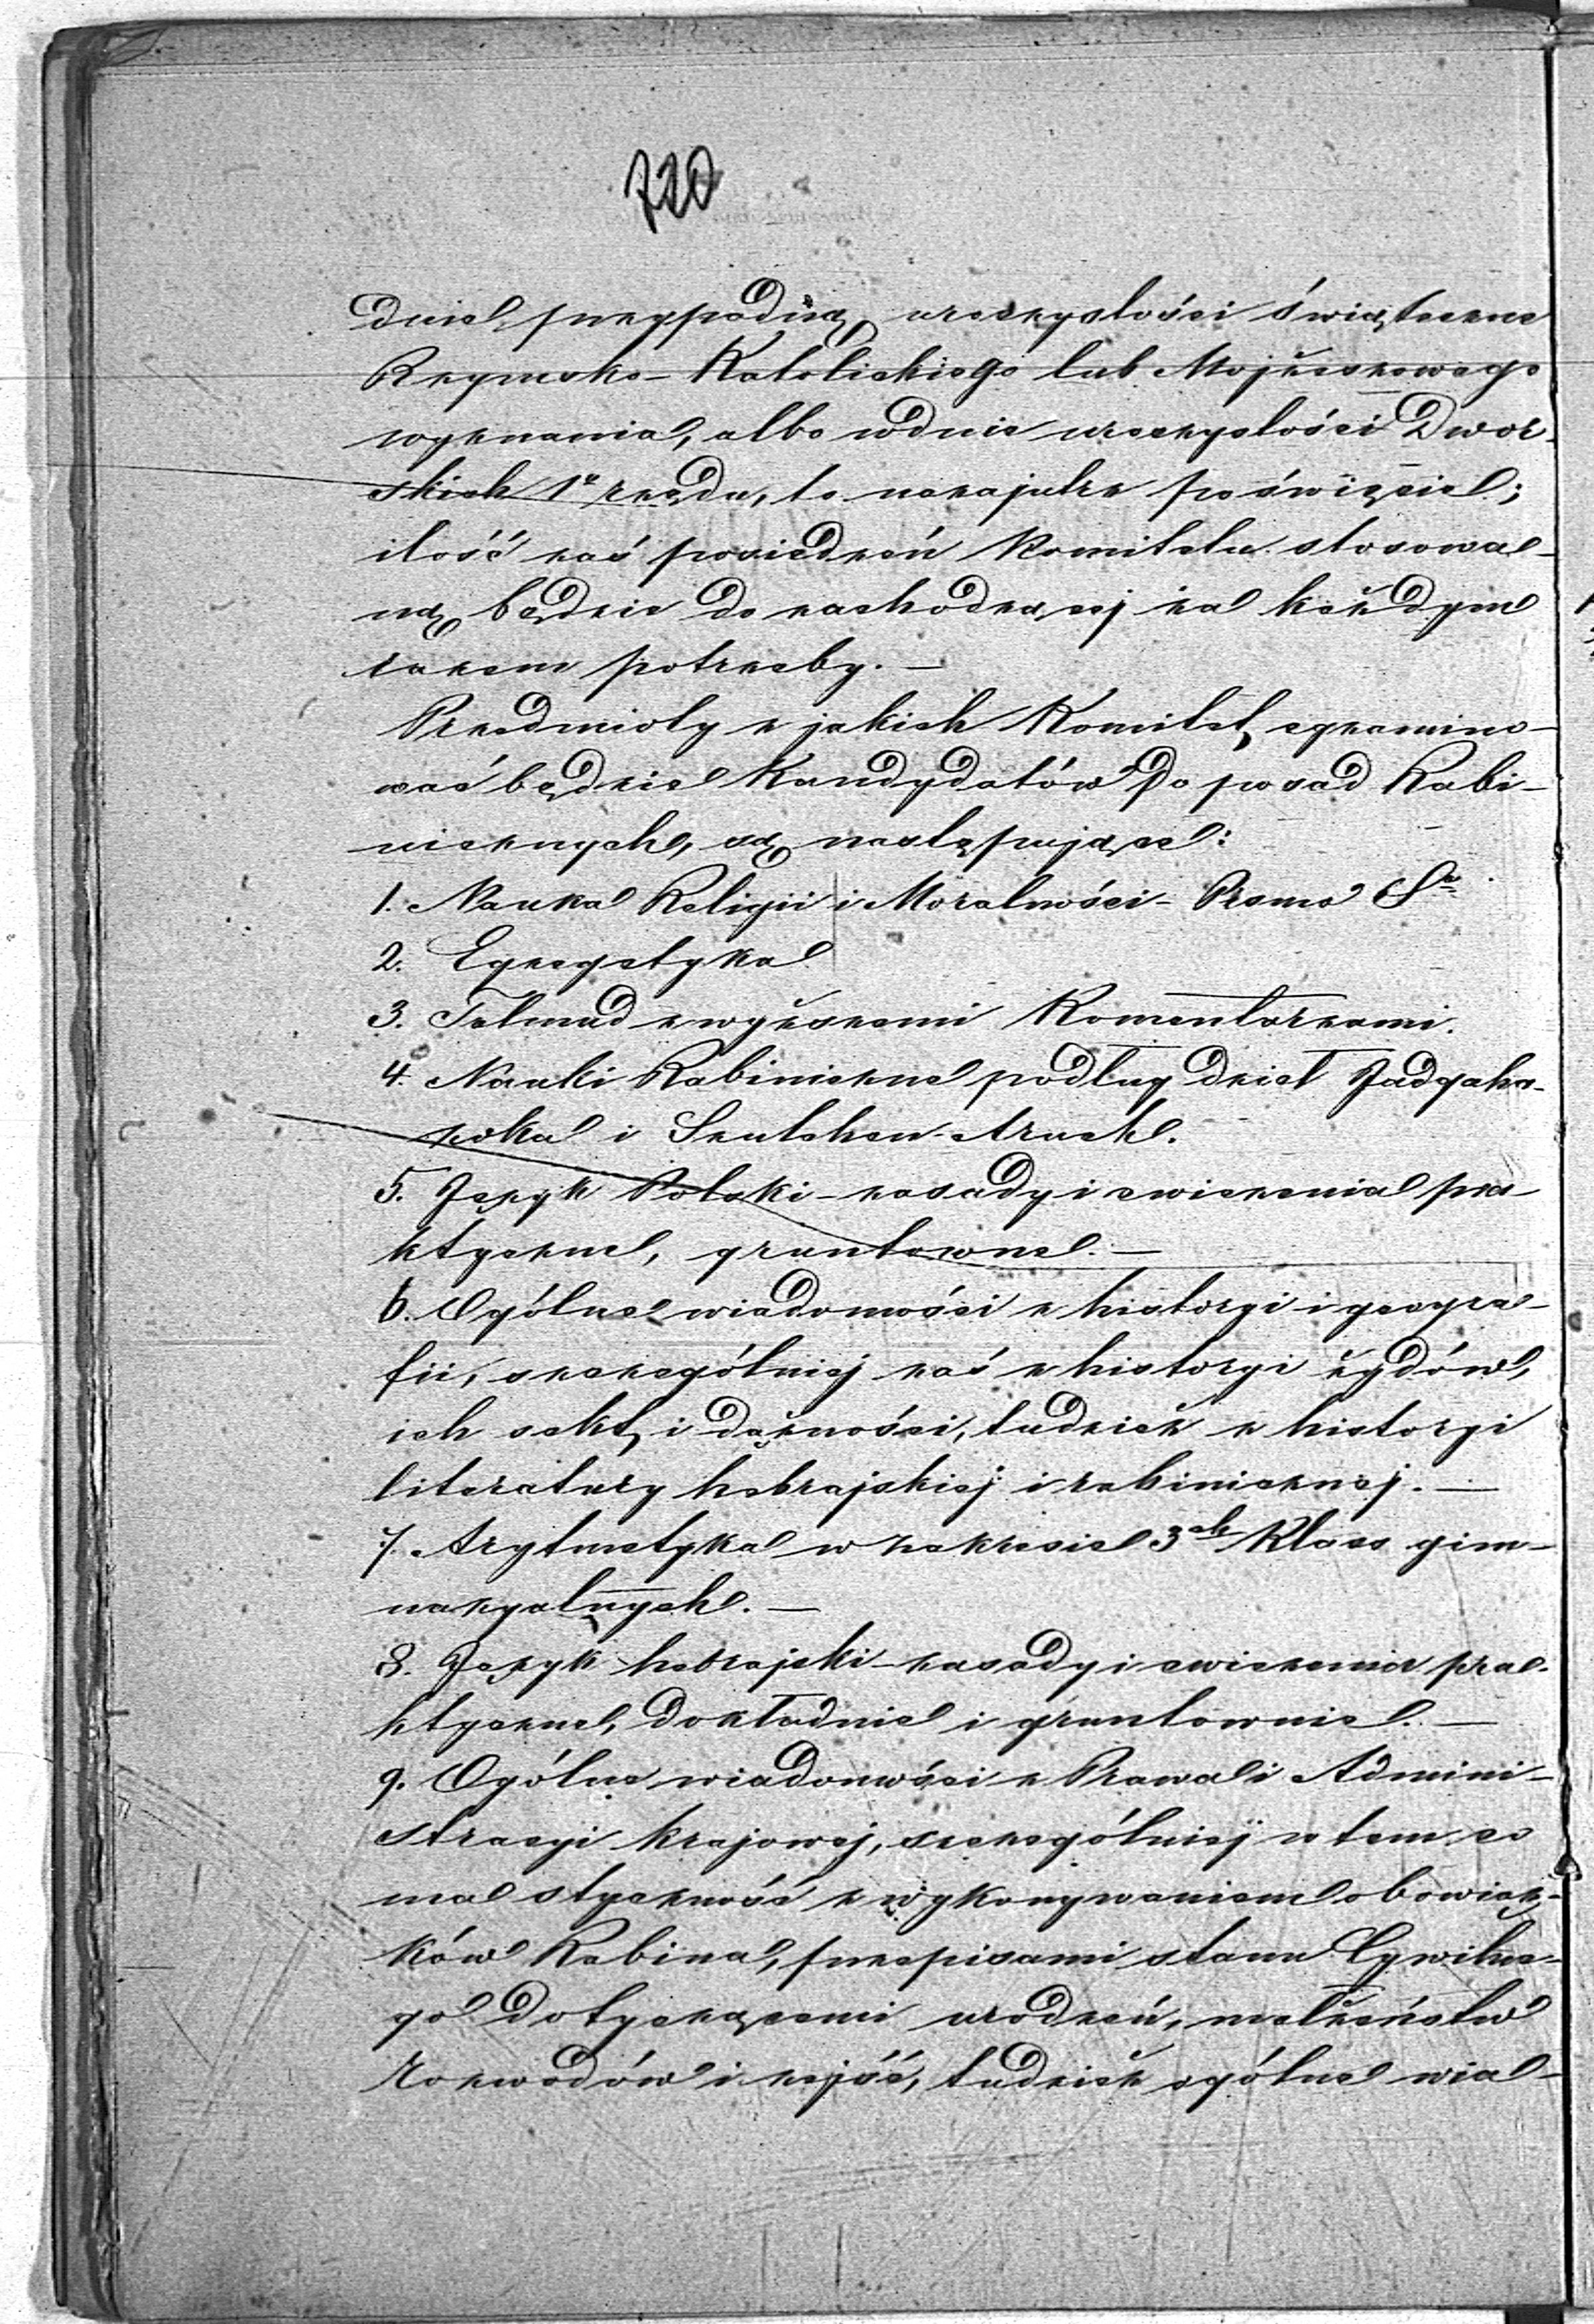 720
dnie przypadną uroczystości świąteczne
Rzymsko-Katolickiego lub Mojżeszowego
wyznania, albo w dnie uroczystości Dwor-
skich 1o rzędu, to nazajutrz po święcie;
ilość zaś posiedzeń Komitetu stosowa-
ną będzie do zachodzącej za każdym
razem potrzeby. —
Przedmioty z jakich Komitet, egzamino-
wać będzie Kandydatów do posad Rabi-
nicznych, są następujące:
1. Nauka Religii i Moralności - Pismo Ste
2. Egzegetyka
3. Talmud z wyższemi Komentarzami.
4. Nauki Rabiniczne podług dzieł Jadgaha-
zoka i Szulchan-Aruch.
5. Język Polski - zasady i cwiczenia pra-
ktyczne, gruntowne. —
6. Ogólne wiadomości z historyi i geogra-
fii, szczególniej zaś z historyi żydów,
ich sekt, i dążności, tudzież z historyi
literatury hebrajskiej i rabinicznej. —
7. Arytmetyka w zakresie 3ch Klass gim-
nazyalnych. —
8. Język hebrajski - zasady i cwiczenia pra-
ktyczne, dokładnie i gruntownie. —
9. Ogólne wiadomości z Prawa i Admini-
stracyi krajowej, szczególniej w tem co
ma styczność z wykonywaniem obowiąz-
ków Rabina, przepisami stanu Cywilne-
go dotyczącemi urodzeń, małżeństw
rozwodów i zejść, tudzież ogólne wia-